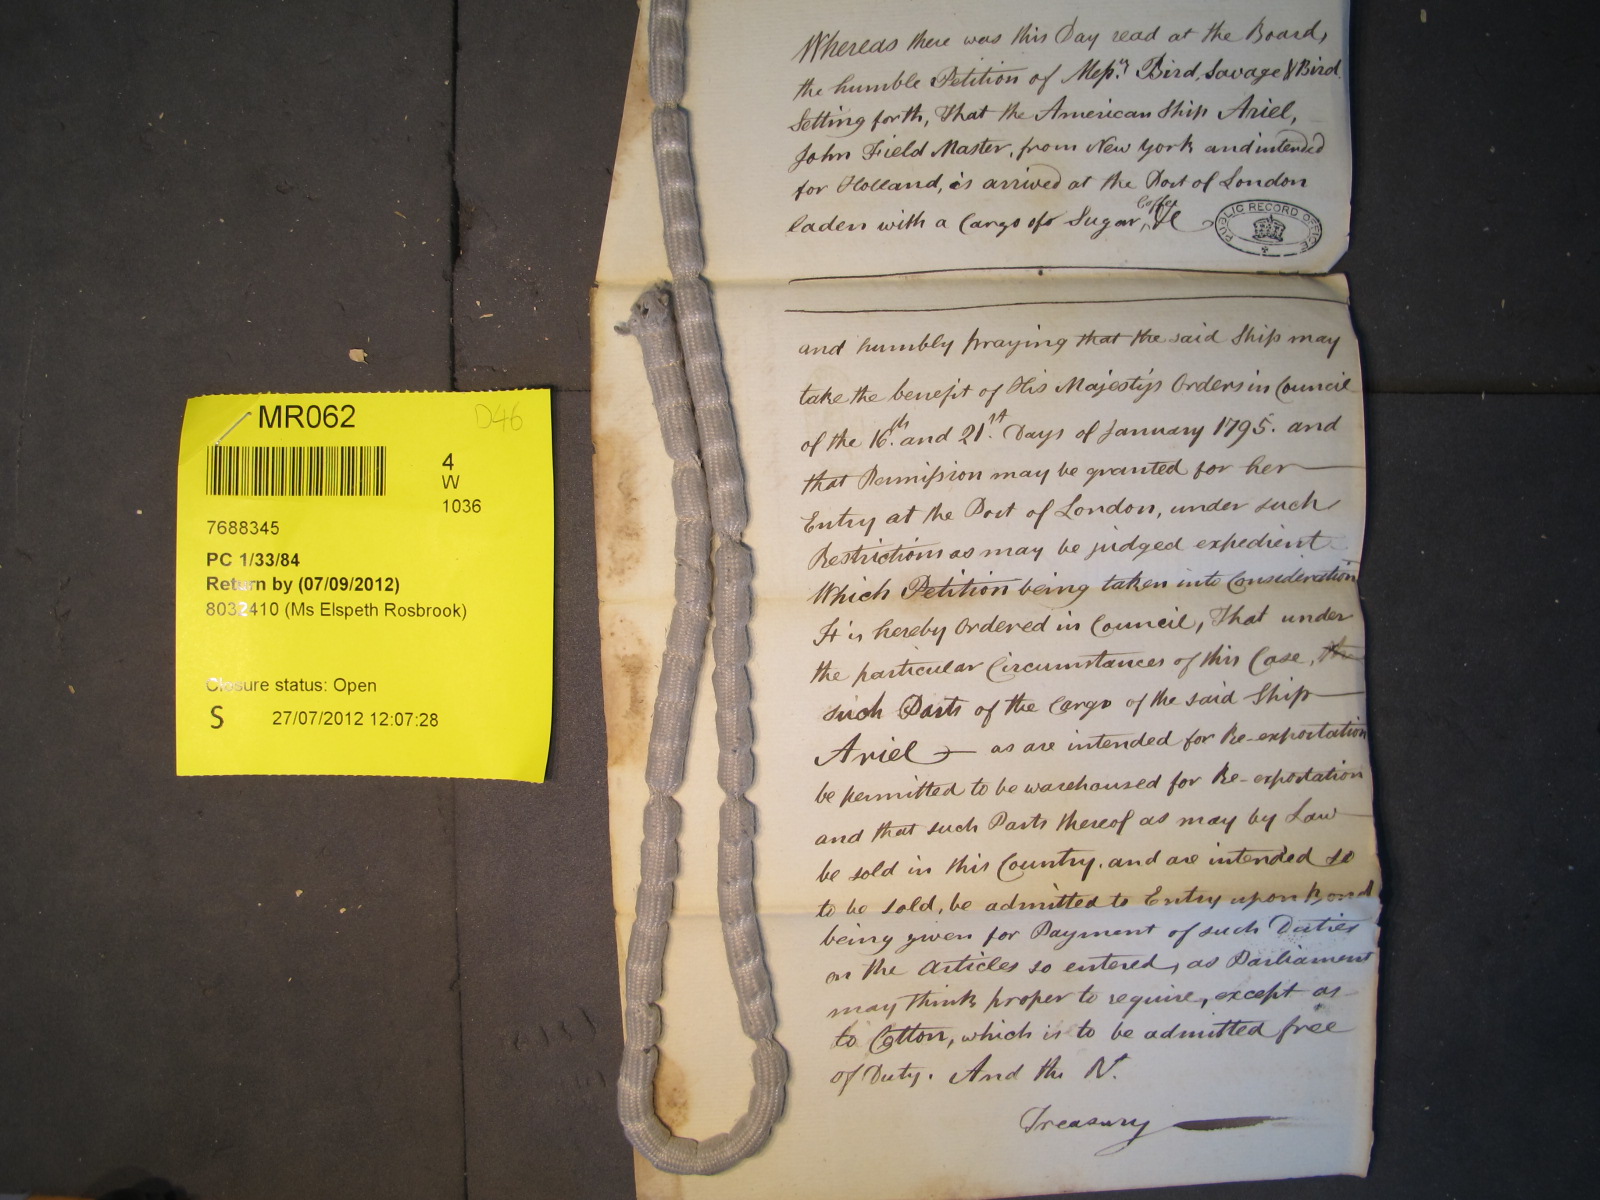 MR062
D46
4
W
1036
7688345
PC 1/33/84
Return by (07/09/2012)
8032410 (Ms Elspeth Rosbrook)
Closure status: Open
S 27/07/2012 12:07:28
Whereas there was this Day read at the Board,
the humble Petition of Messrs. Bird, Savage & Bird
Setting forth, That the American Ship Ariel,
John Field Master, from New York and intended
for Holland, is arrived at the Port of London
laden with a Cargo of Sugar, Coffee &c
PUBLIC RECORD OFFICE
and humbly praying that the said Ship may
take the benefit of His Majesty's Orders in Council
of the 16th. and 21st. Days of January 1795. and
that Permission may be granted for her
Entry at the Port of London, under such
Restrictions as may be judged expedient
Which Petition being taken into Consideration
It is hereby Ordered in Council, That under
the particular Circumstances of this Case, the
such Parts of the Cargo of the said Ship
Ariel — as are intended for Re-exportation
be permitted to be warehoused for Re-exportation
and that such Parts thereof as may by Law
be sold in this Country, and are intended so
to be sold, be admitted to Entry upon Bond
being given for Payment of such Duties
on the Articles so entered, as Parliament
may think proper to require, except as
to Cotton, which is to be admitted free
of Duty. And the N.
Treasury